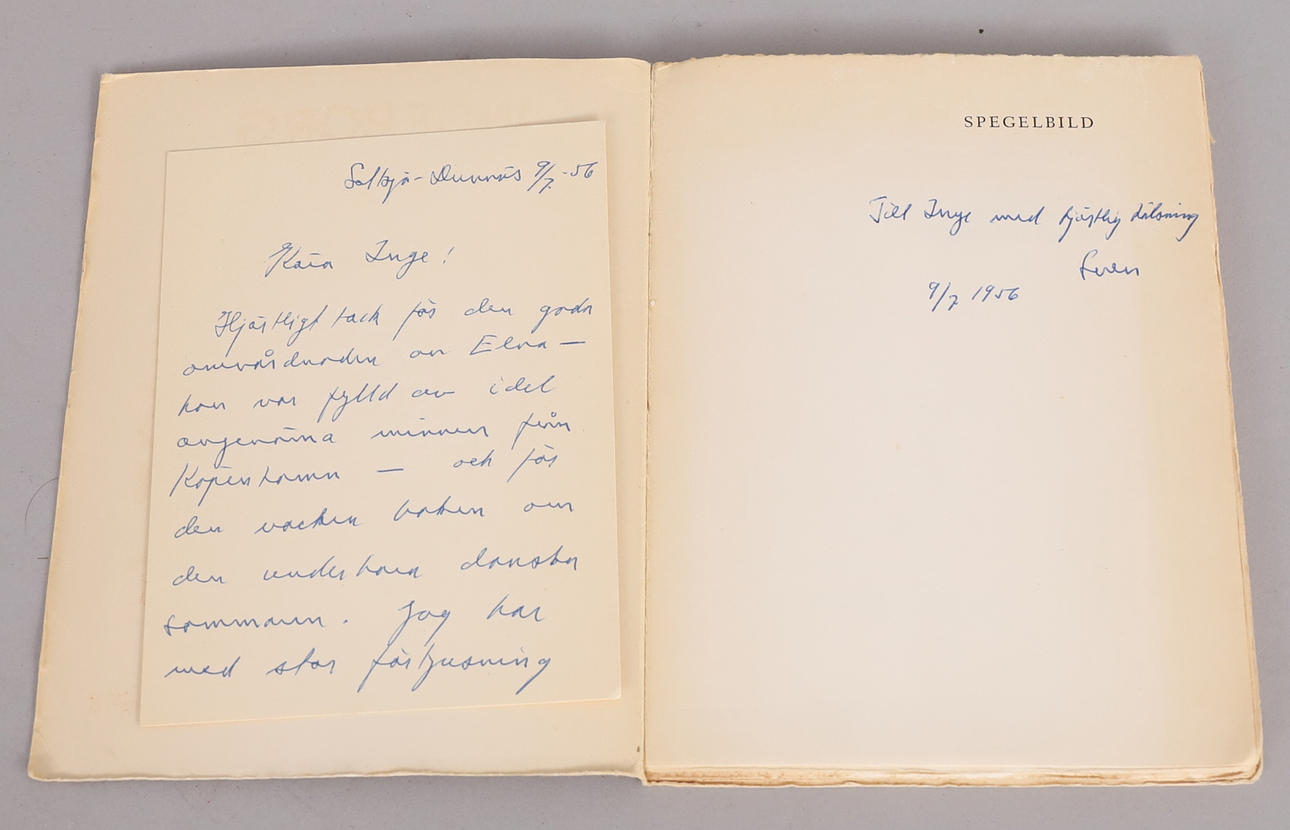 Saltsjö-Duvnäs 9/7-56
Kära Inge!
Hjärtligt tack för den goda
omvårdnaden av Elna —
hon var fylld av idel
angenäma minnen från
Köpenhamn — och för
den vackra boken om
den underbara danska
sommaren. Jag har
med stor förtjusning
SPEGELBILD
Till Inge med hjärtlig hälsning
Sven
9/7 1956